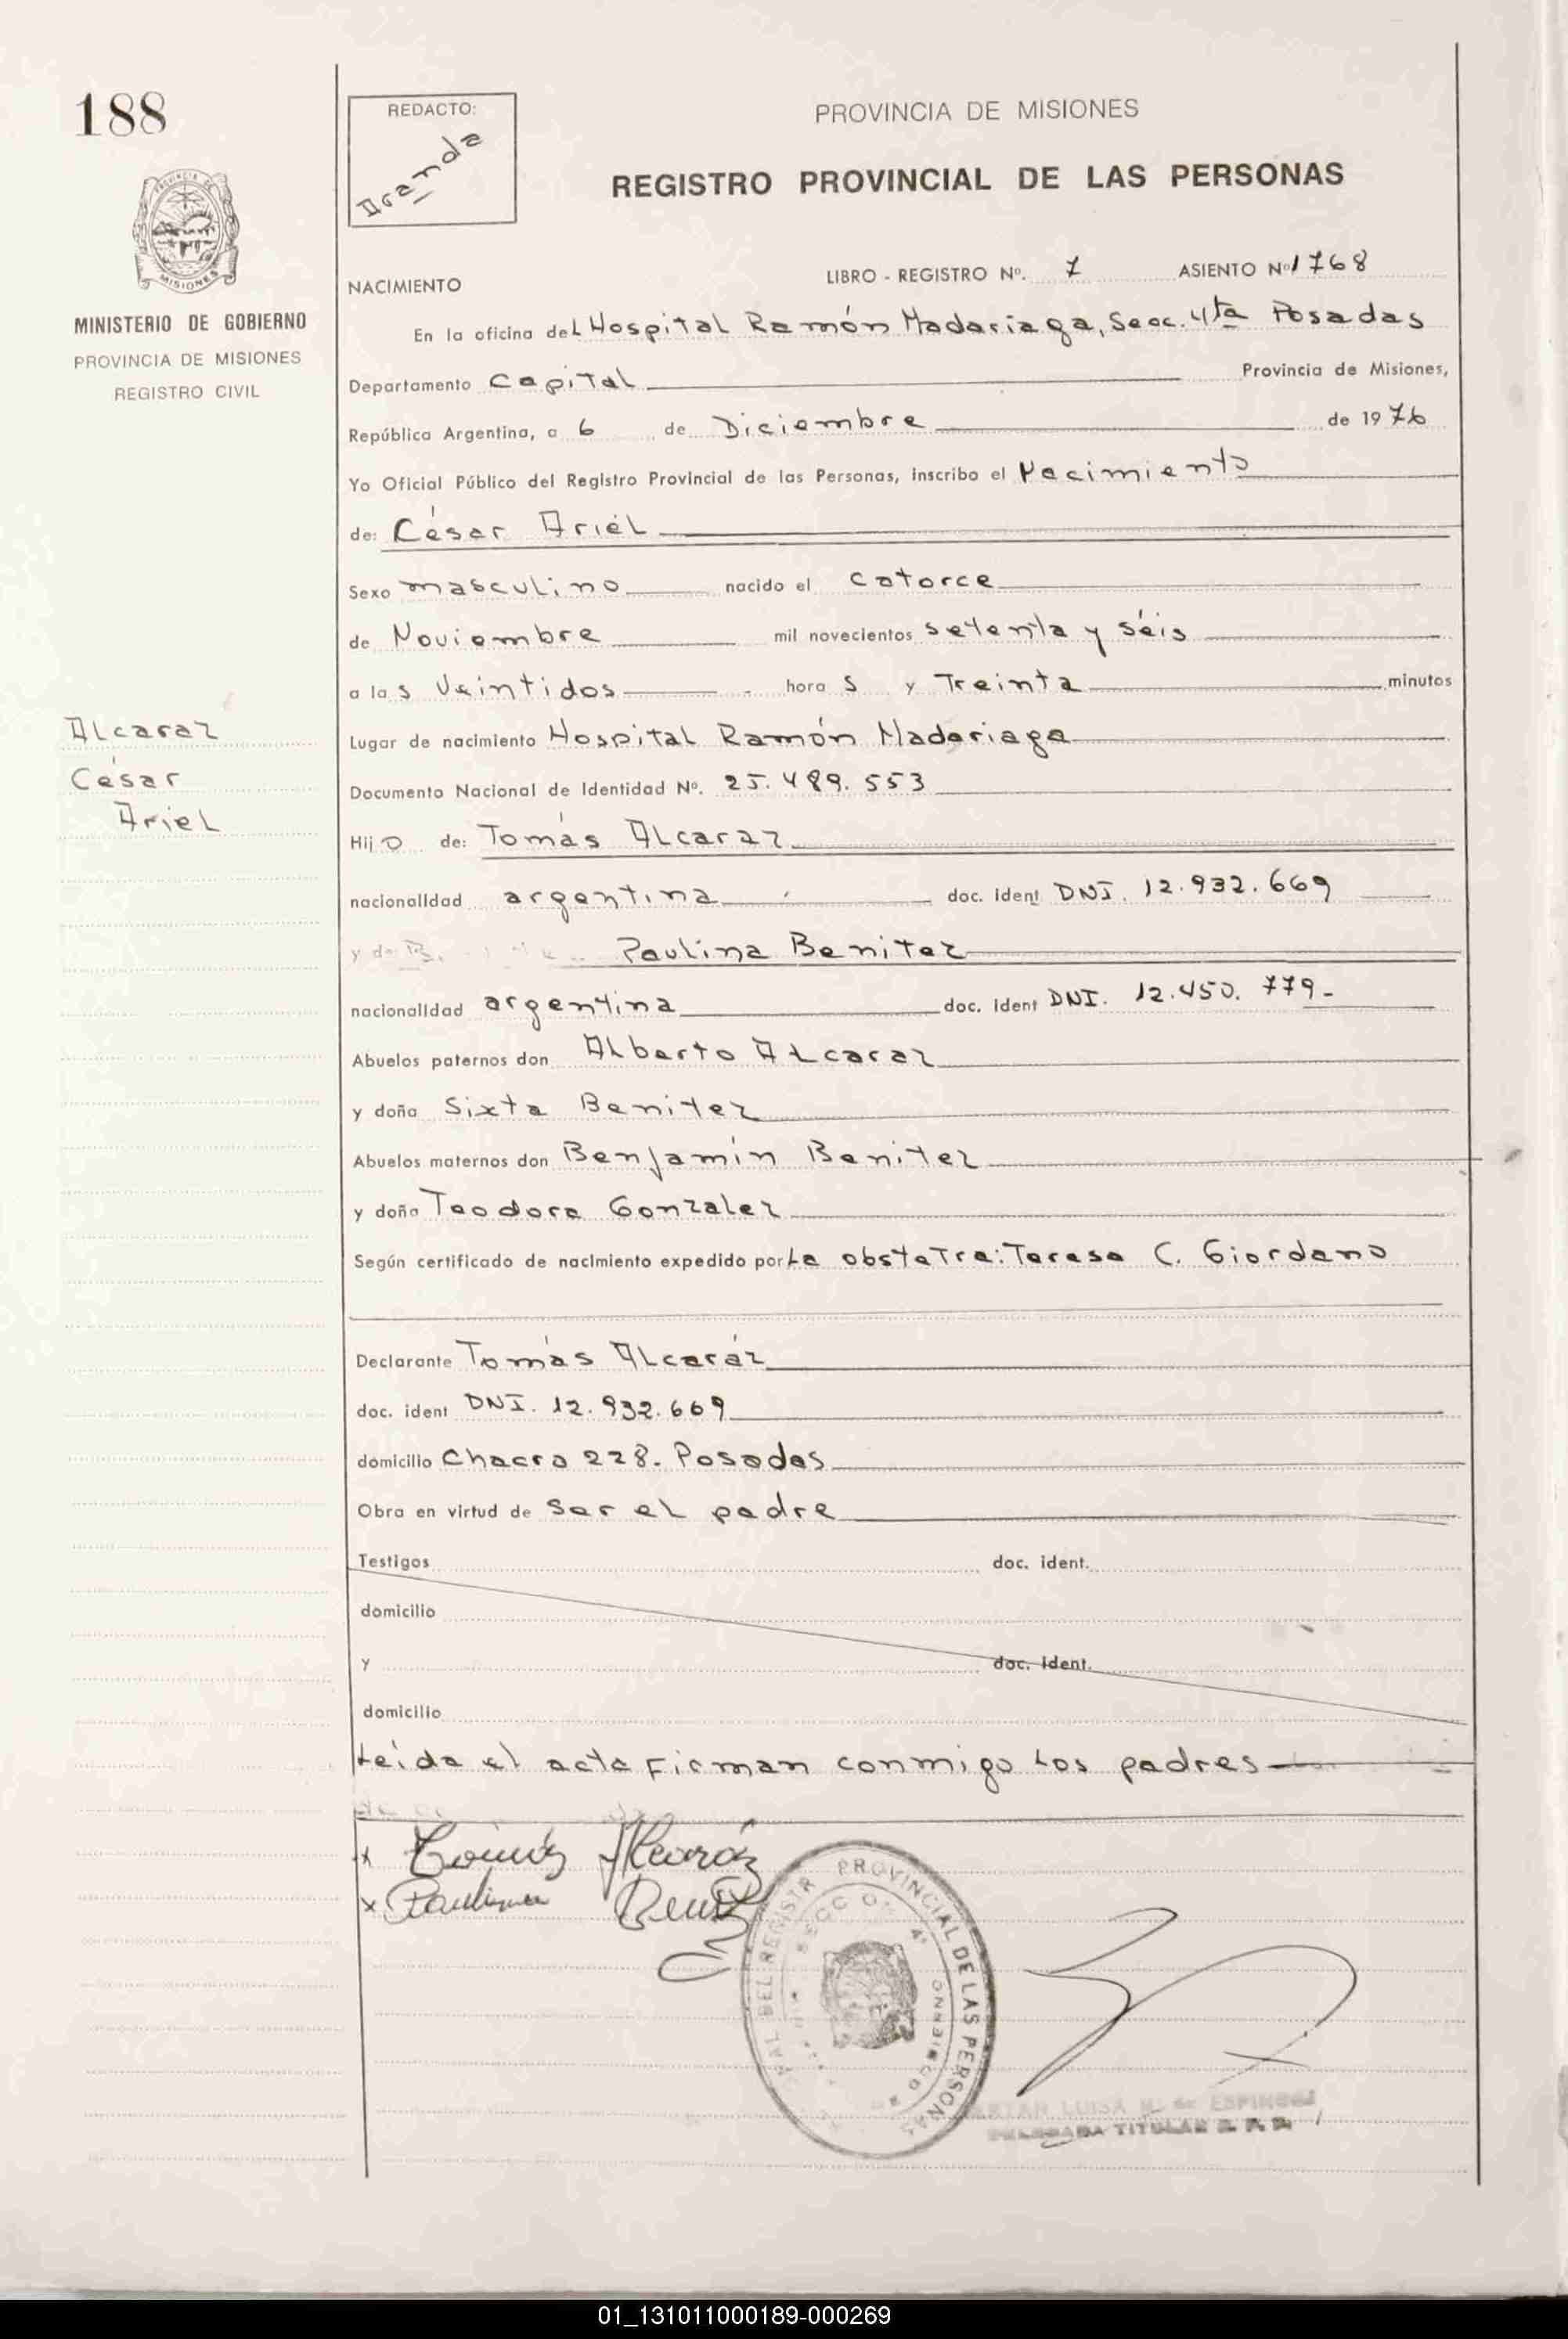 188
REDACTO:
Aranda
PROVINCIA DE MISIONES
REGISTRO PROVINCIAL DE LAS PERSONAS
MISIONES
MINISTERIO DE GOBIERNO
PROVINCIA DE MISIONES
REGISTRO CIVIL
NACIMIENTO
LIBRO - REGISTRO Nº. 7 ASIENTO Nº 1768
En la oficina del Hospital Ramón Madariaga, Secc. 4ta Posadas
Departamento Capital Provincia de Misiones,
República Argentina, a 6 de Diciembre de 1976
Yo Oficial Público del Registro Provincial de las Personas, inscribo el Nacimiento
de: César Ariel
Sexo masculino nacido el catorce
de Noviembre mil novecientos setenta y séis
a las veintidos horas y Treinta minutos
Alcaraz
César
Ariel
Lugar de nacimiento Hospital Ramón Madariaga
Documento Nacional de Identidad Nº. 25.489.553
Hijo de: Tomás Alcaraz
nacionalidad argentina doc. ident DNI. 12.932.669
y de Paulina Benitez
nacionalidad argentina doc. ident DNI. 12.450.779-
Abuelos paternos don Alberto Alcaraz
y doña Sixta Benitez
Abuelos maternos don Benjamín Benitez
y doña Teodora Gonzalez
Según certificado de nacimiento expedido por La obstetra: Teresa C. Giordano
Declarante Tomás Alcaráz
doc. ident DNI. 12.932.669
domicilio Chacra 228. Posadas
Obra en virtud de ser el padre
Testigos doc. ident.
domicilio
y doc. ident.
domicilio
Leída el acta Firman conmigo Los padres
x Tomás Alcaráz
x Paulina Benitez
PROVINCIAL DE LAS PERSONAS
LUISA de ESPINOSA
TITULAR
01_131011000189-000269